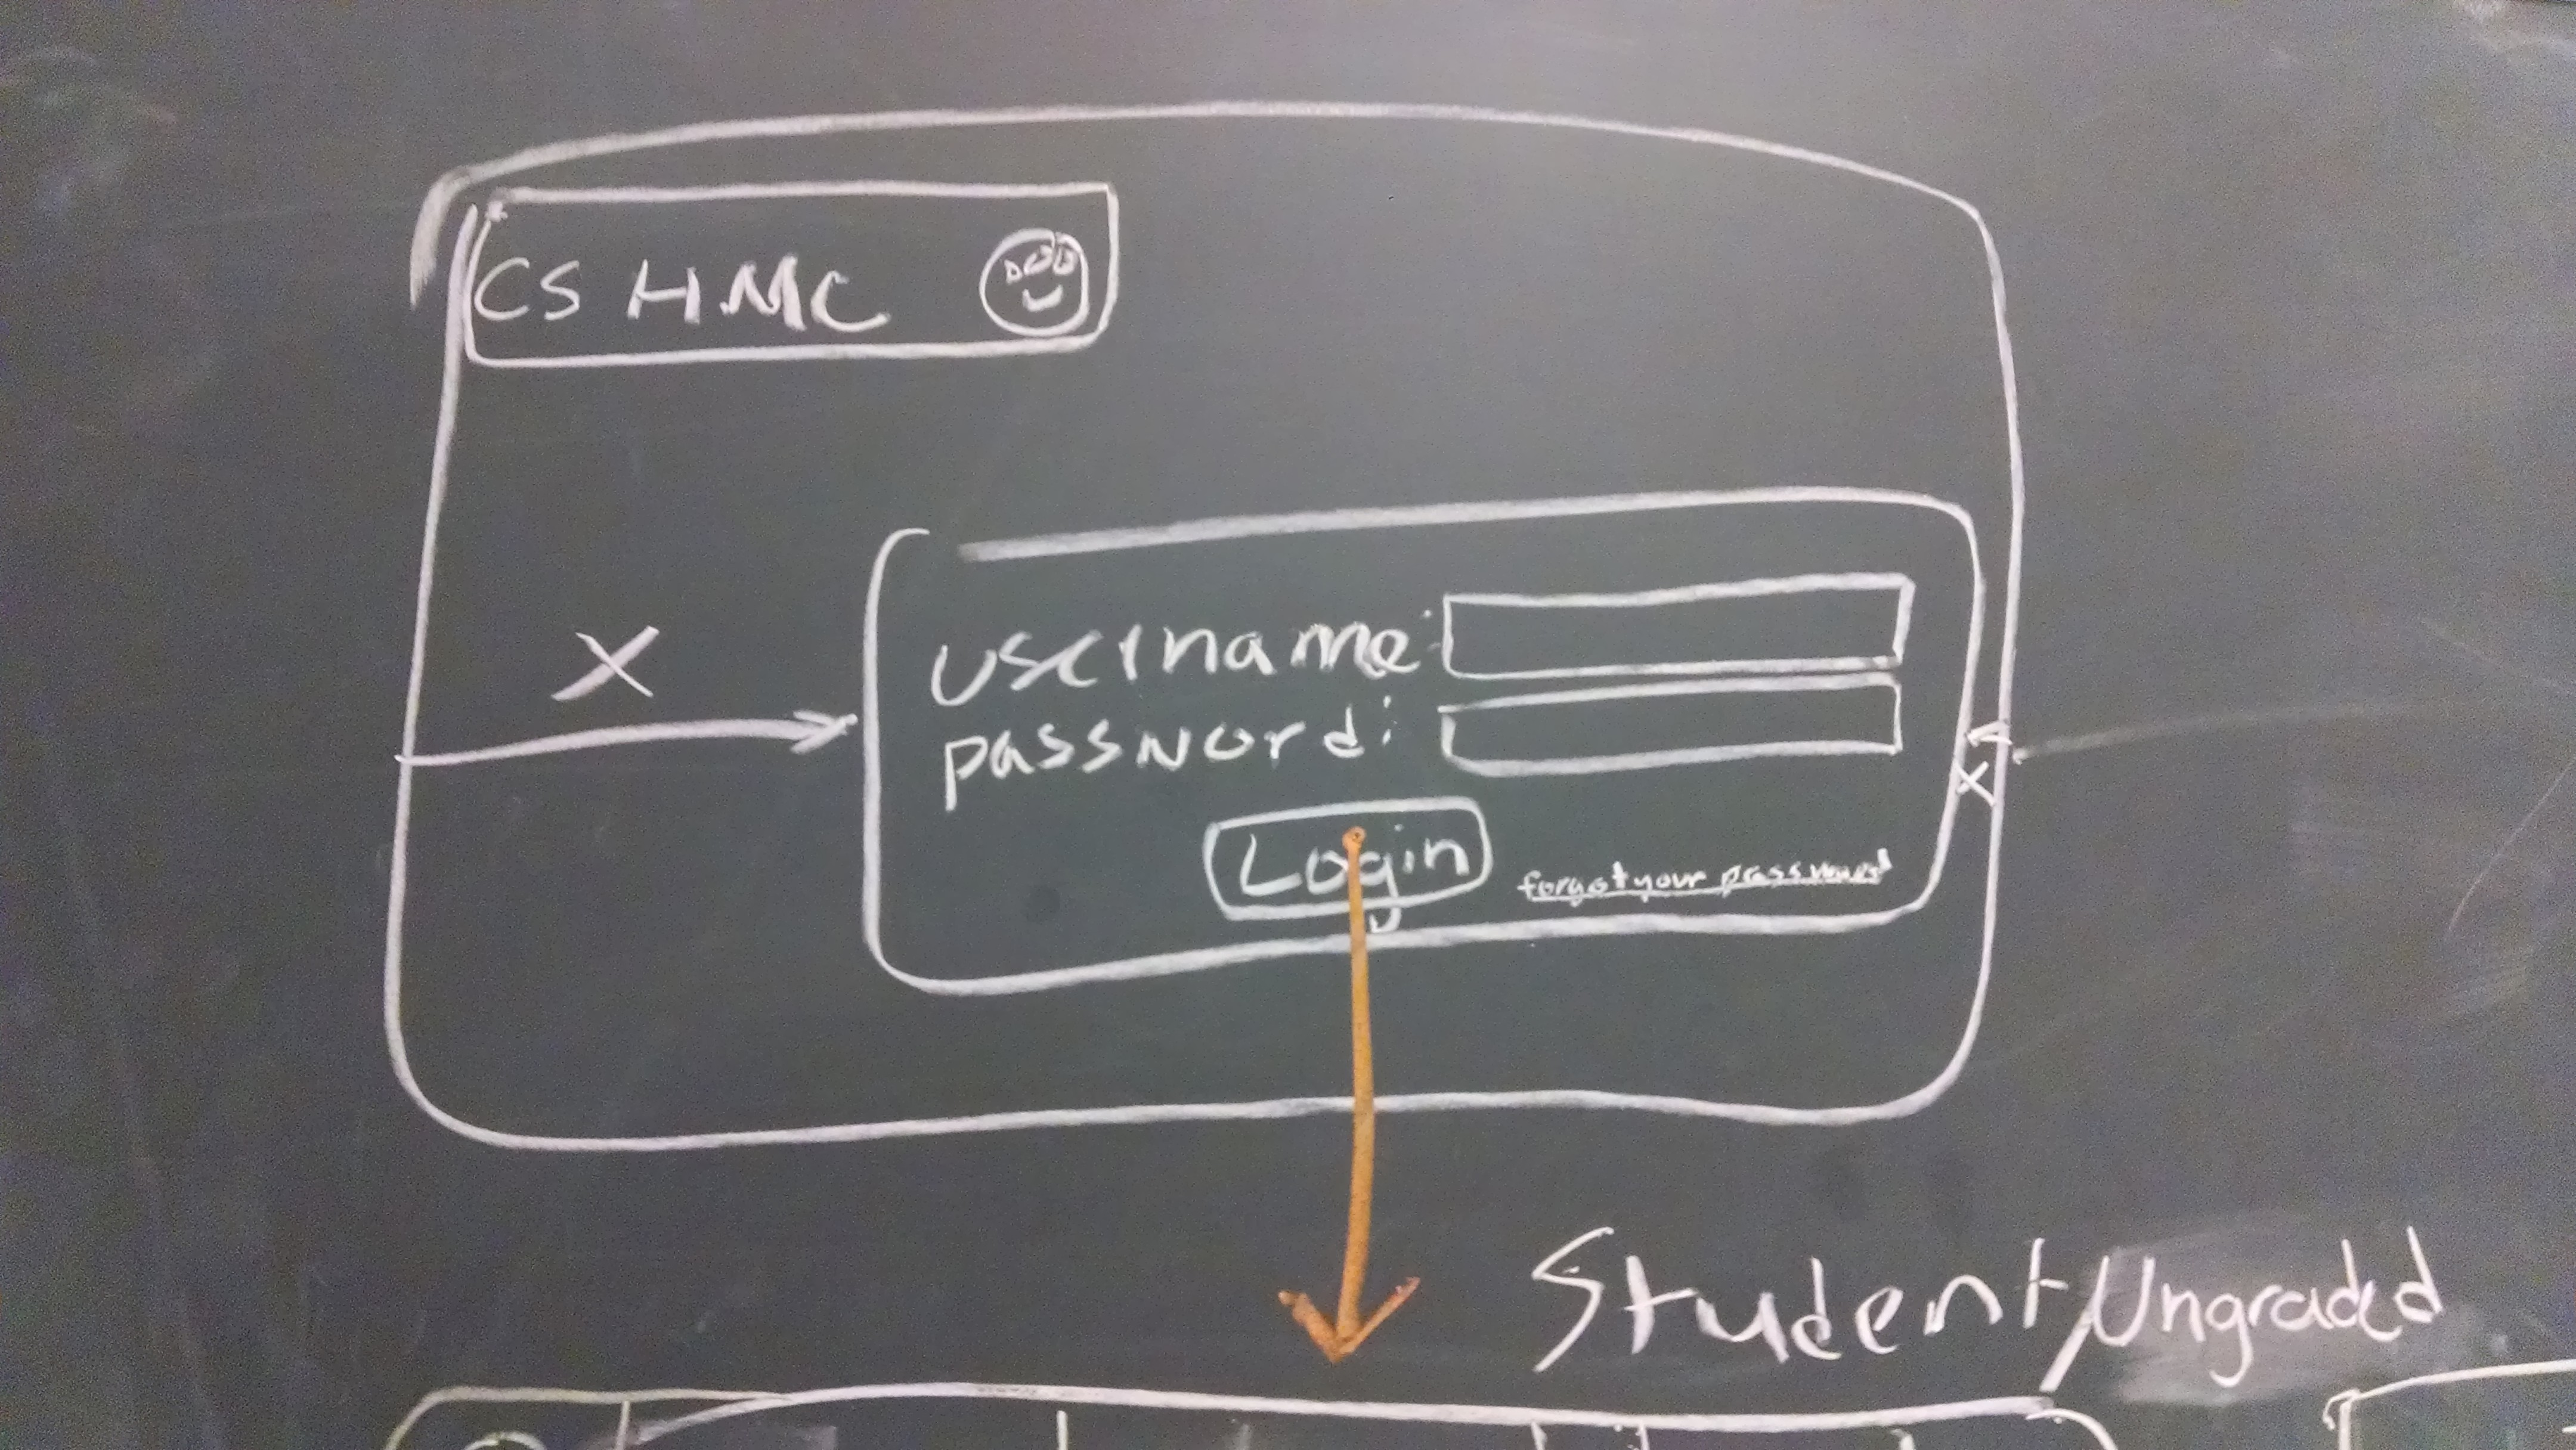 CS HMC
X
username:
password:
x
Login
forgot your password
Student/Ungraded